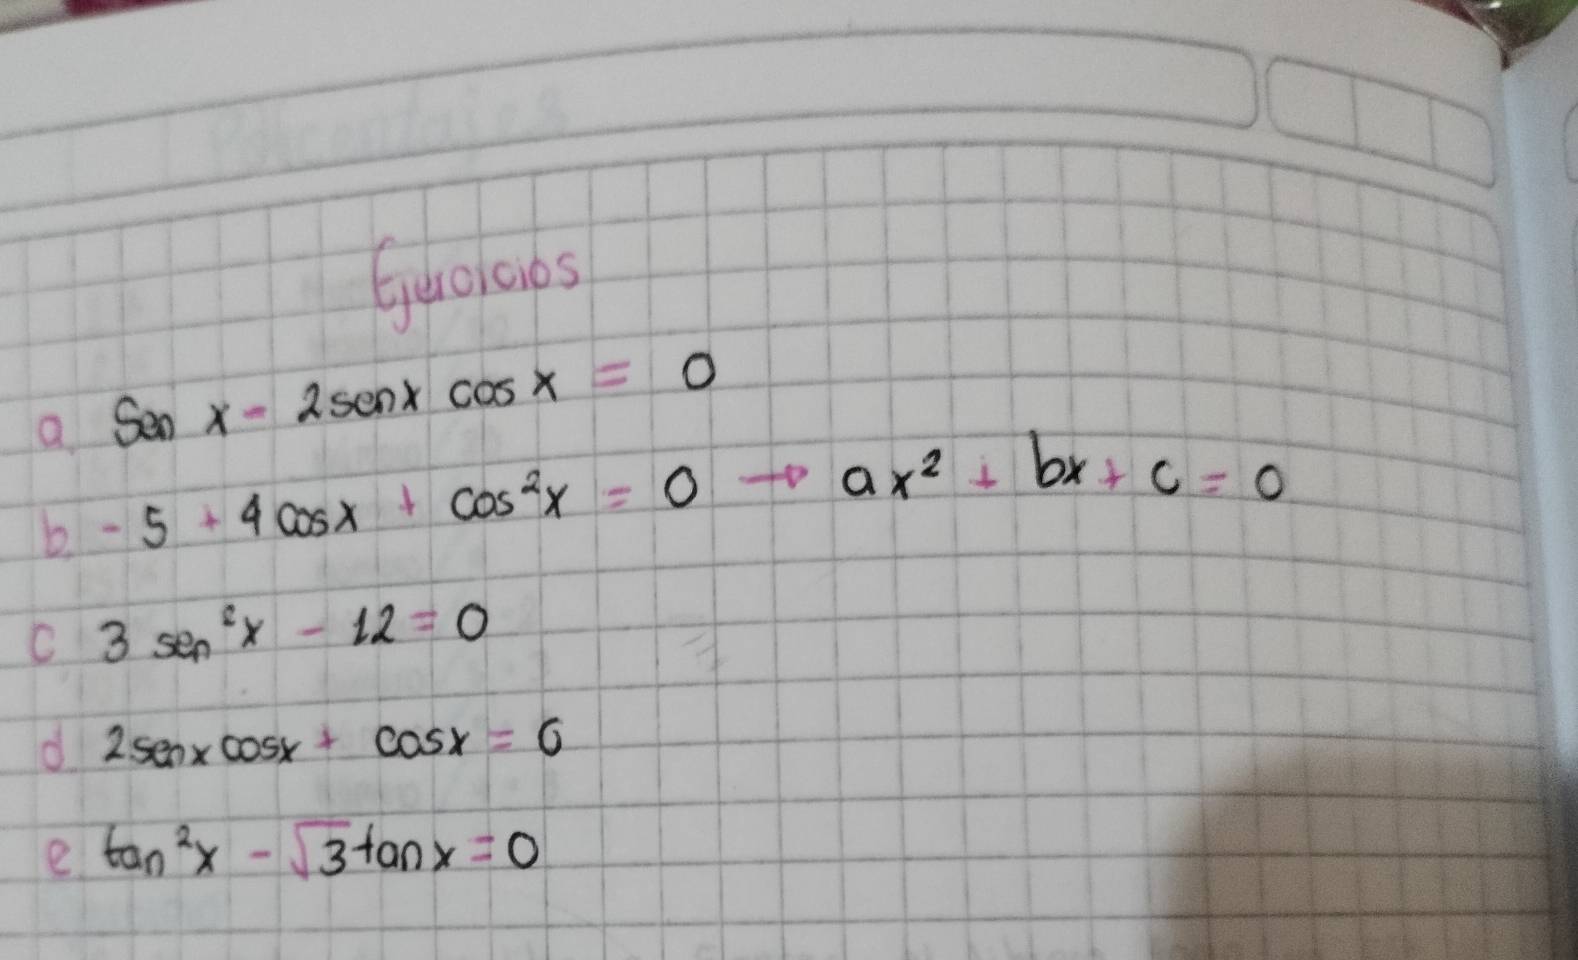 Ejercicios
a. Sen x - 2senx cos x = 0
b. - 5 + 4 cosx + cos²x = 0 → ax² + bx + c = 0
c 3 sen²x - 12 = 0
d 2senx cosx + cosx = 0
e tan²x - √3 tan x = 0